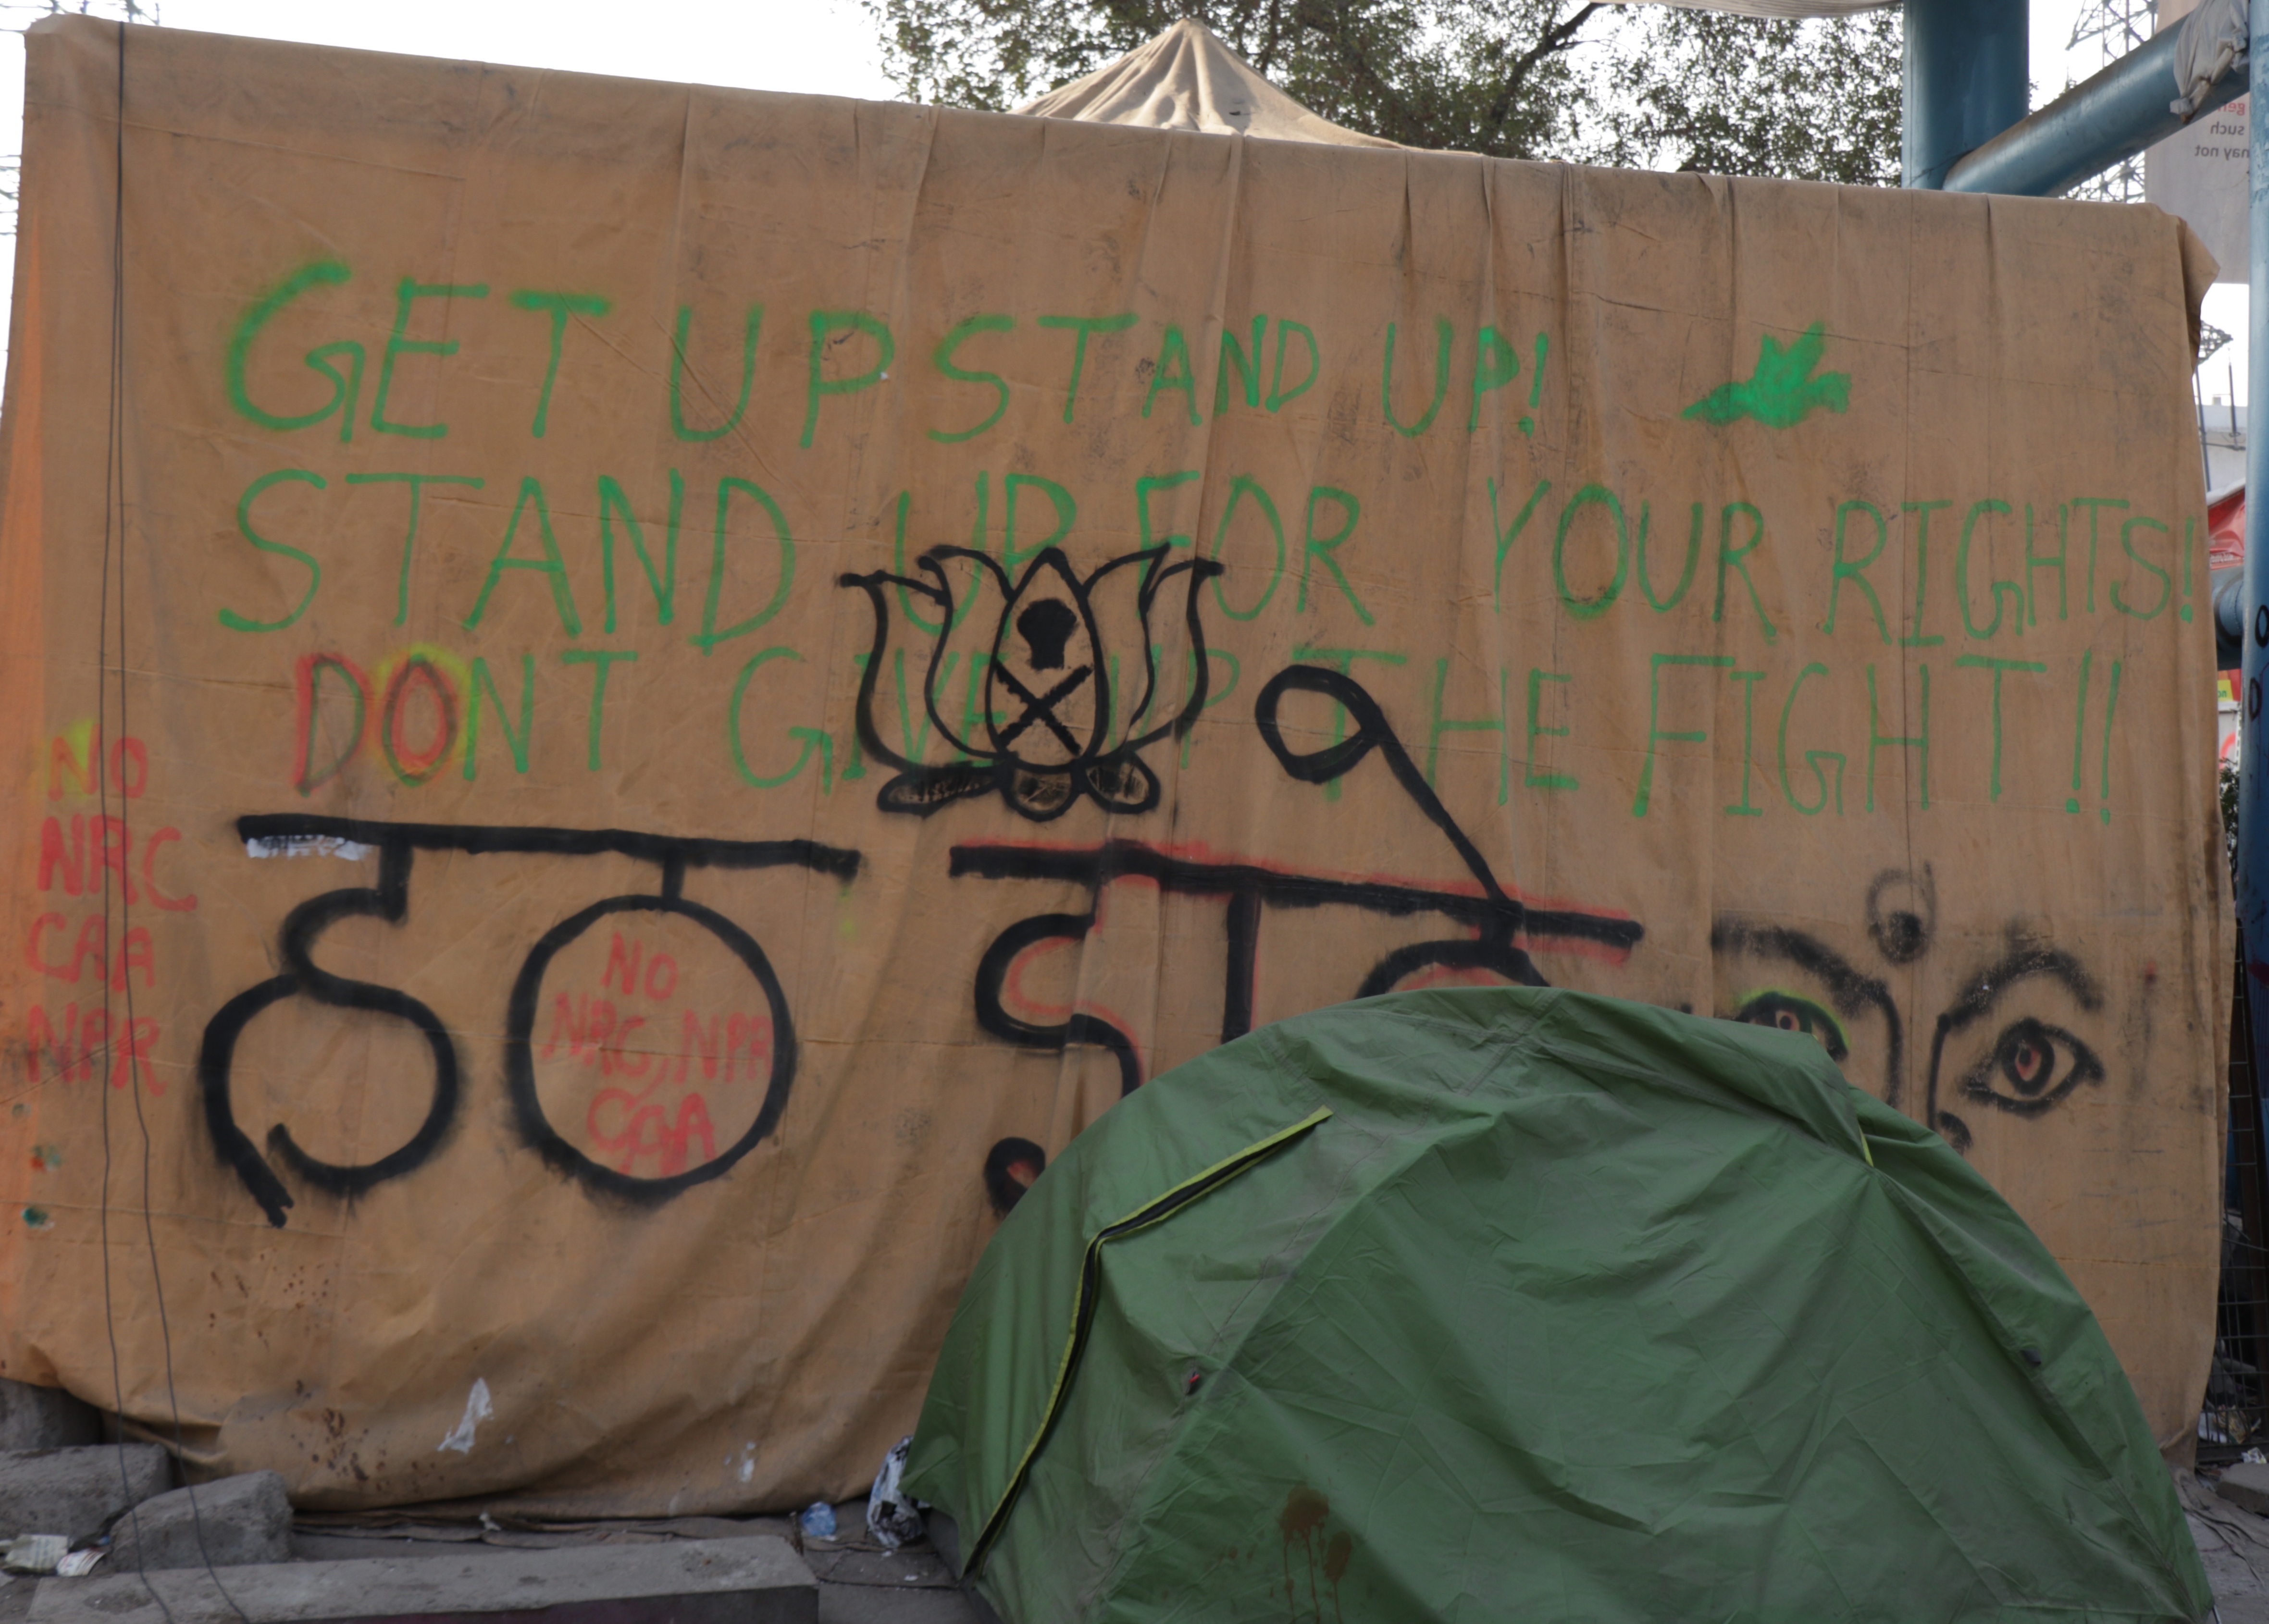 GET UP STAND UP!
STAND UP FOR YOUR RIGHTS!
DONT GIVE UP THE FIGHT!!
NO
NRC
CAA
NPR
हठ
NO
NRC, NPR
CAA